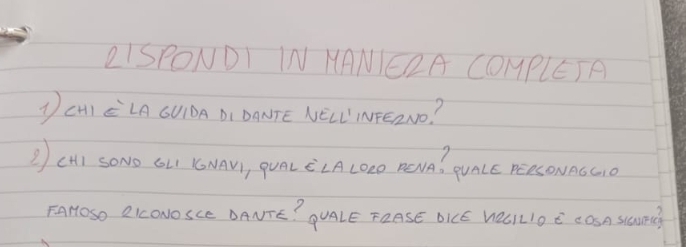 RISPONDI IN MANIERA COMPLETA
1) CHI È LA GUIDA DI DANTE NELL'INFERNO?
2) CHI SONO GLI IGNAVI, QUAL È LA LORO PENA? QUALE PERSONAGGIO
FAMOSO RICONOSCE DANTE? QUALE FRASE DICE VIRGILIO E COSA SIGNIFICA?